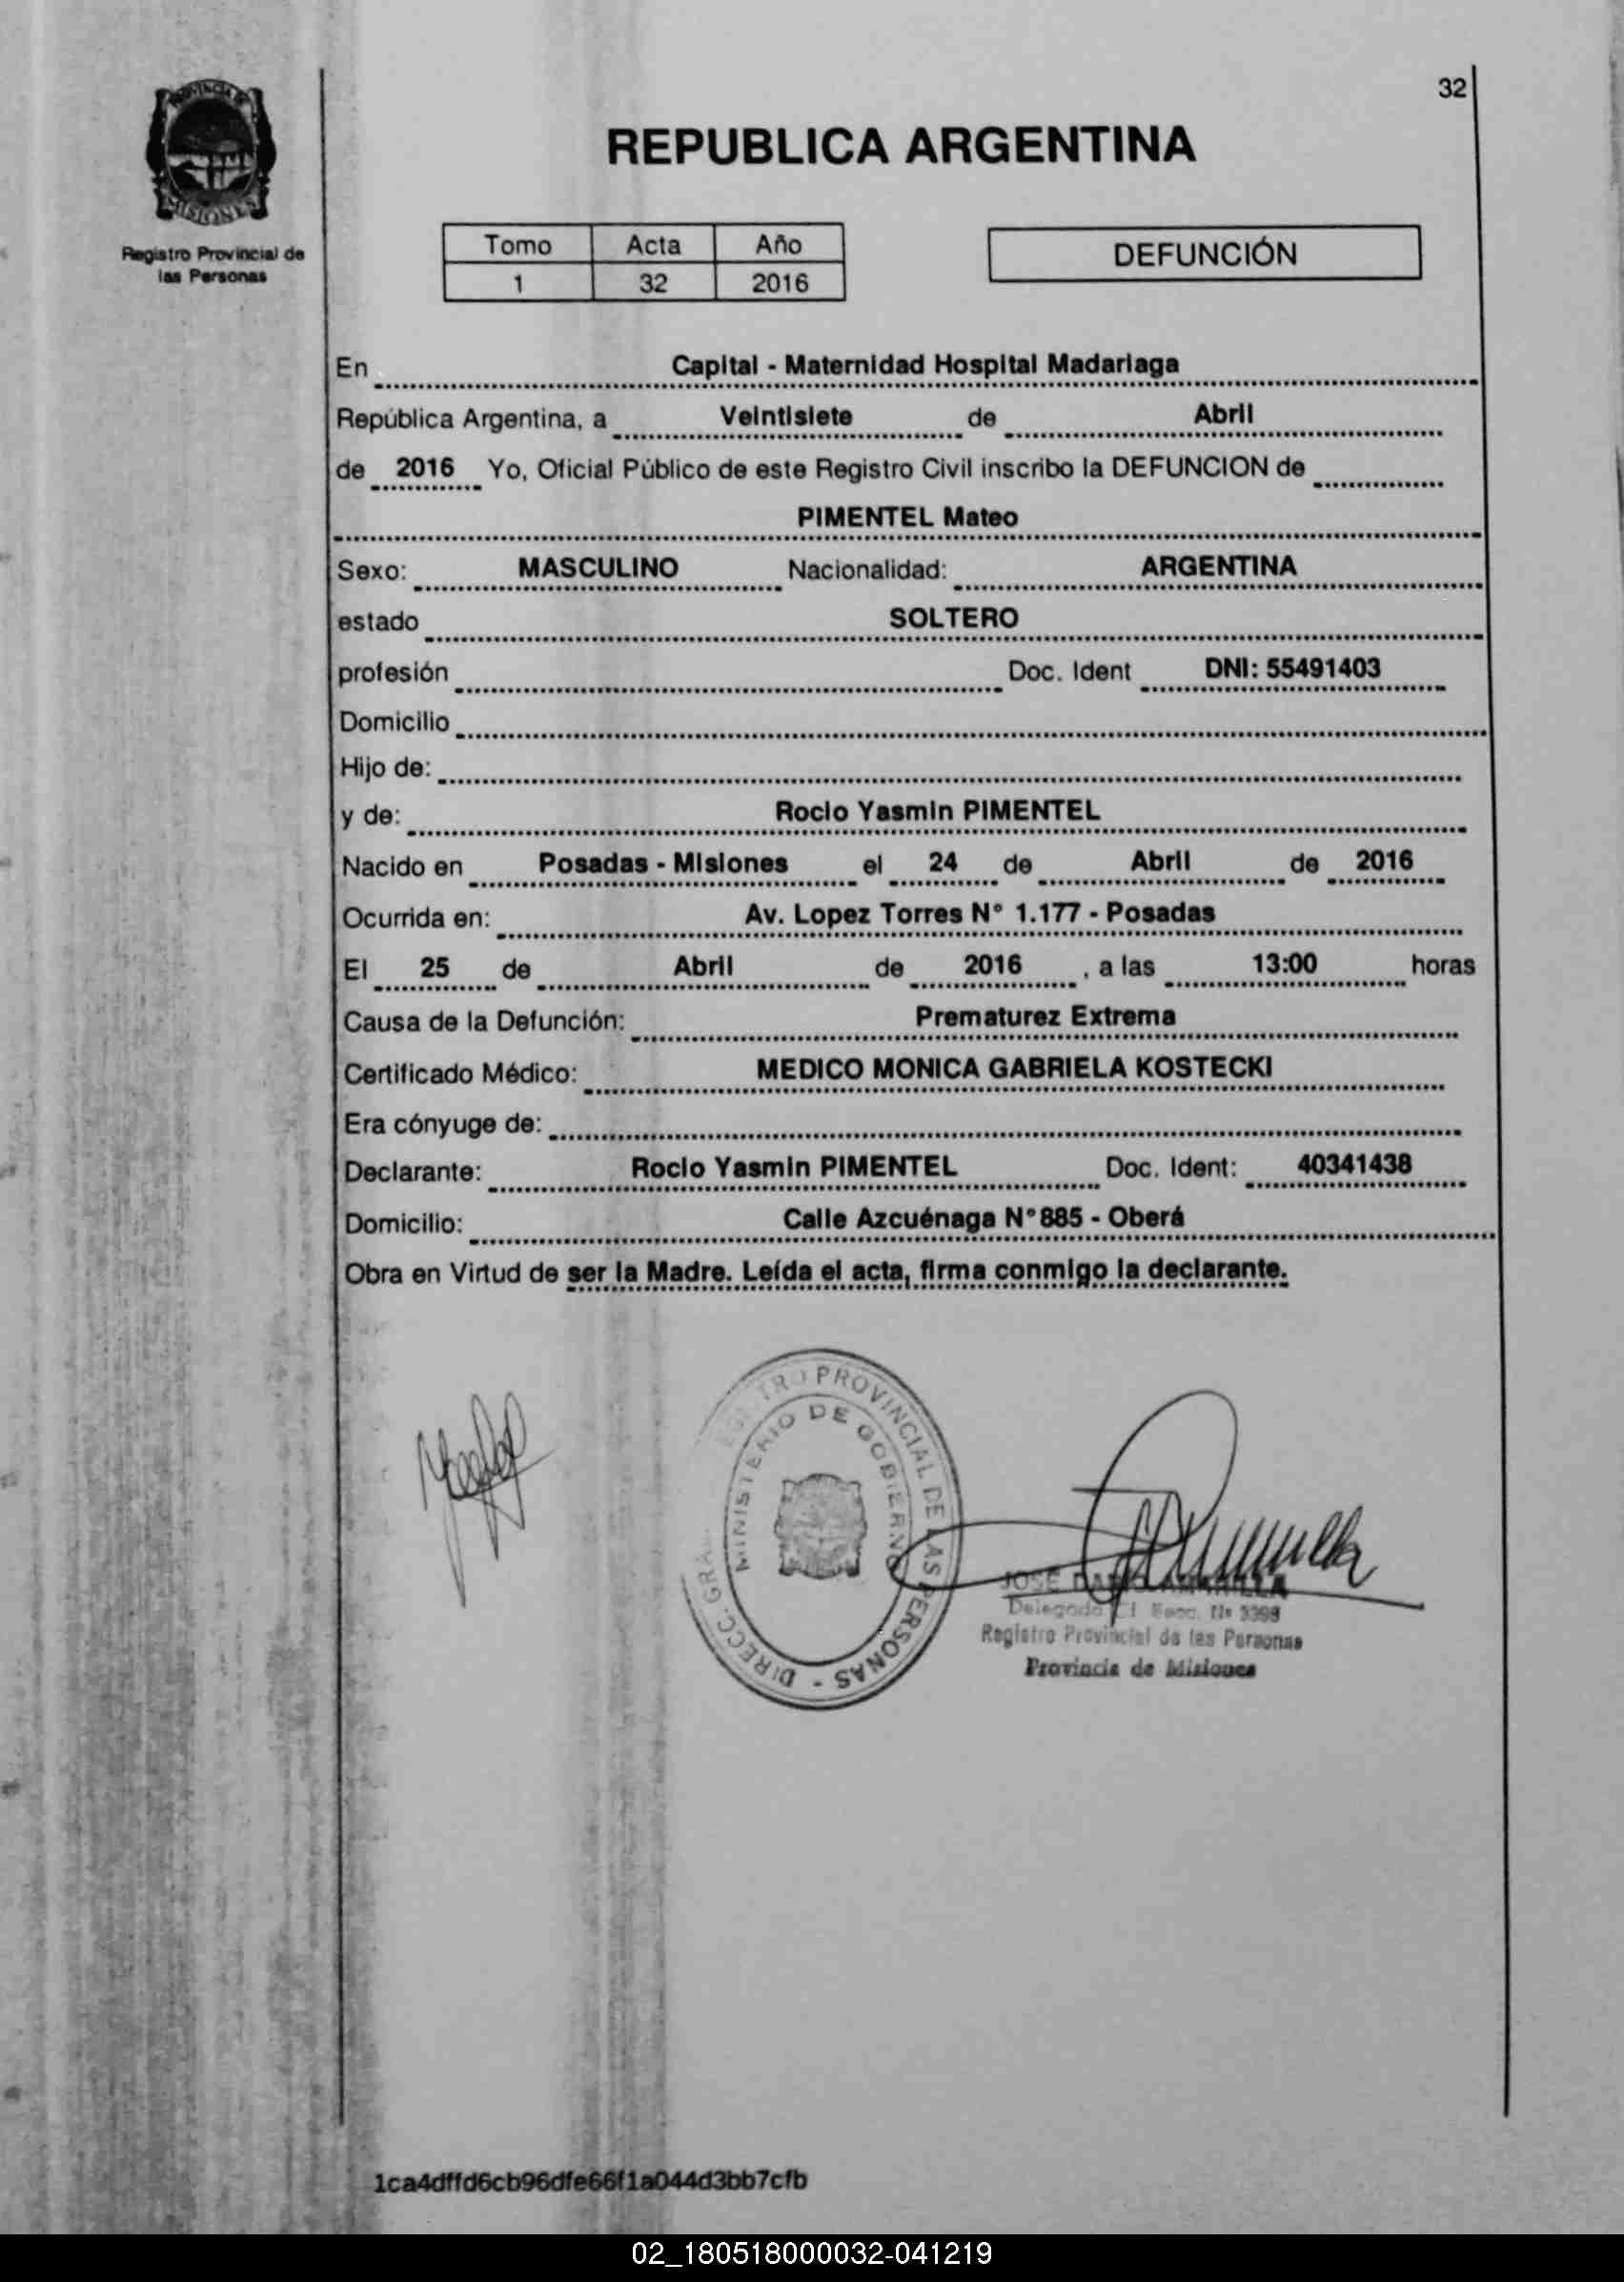 32
PROVINCIA DE
MISIONES
Registro Provincial de
las Personas
REPUBLICA ARGENTINA
Tomo Acta Año
1 32 2016
DEFUNCIÓN
En Capital - Maternidad Hospital Madariaga
República Argentina, a Veintisiete de Abril
de 2016 Yo, Oficial Público de este Registro Civil inscribo la DEFUNCION de
PIMENTEL Mateo
Sexo: MASCULINO Nacionalidad: ARGENTINA
estado SOLTERO
profesión Doc. Ident DNI: 55491403
Domicilio
Hijo de:
y de: Rocio Yasmin PIMENTEL
Nacido en Posadas - Misiones el 24 de Abril de 2016
Ocurrida en: Av. Lopez Torres N° 1.177 - Posadas
El 25 de Abril de 2016 , a las 13:00 horas
Causa de la Defunción: Prematurez Extrema
Certificado Médico: MEDICO MONICA GABRIELA KOSTECKI
Era cónyuge de:
Declarante: Rocio Yasmin PIMENTEL Doc. Ident: 40341438
Domicilio: Calle Azcuénaga N°885 - Oberá
Obra en Virtud de ser la Madre. Leída el acta, firma conmigo la declarante.
PROVINCIAL DE LAS PERSONAS - DIRECC. GRAL.
MINISTERIO DE GOBIERNO
JOSE
Delegado
Registro Provincial de las Personas
Provincia de Misiones
1ca4dffd6cb96dfe66f1a044d3bb7cfb
02_180518000032-041219